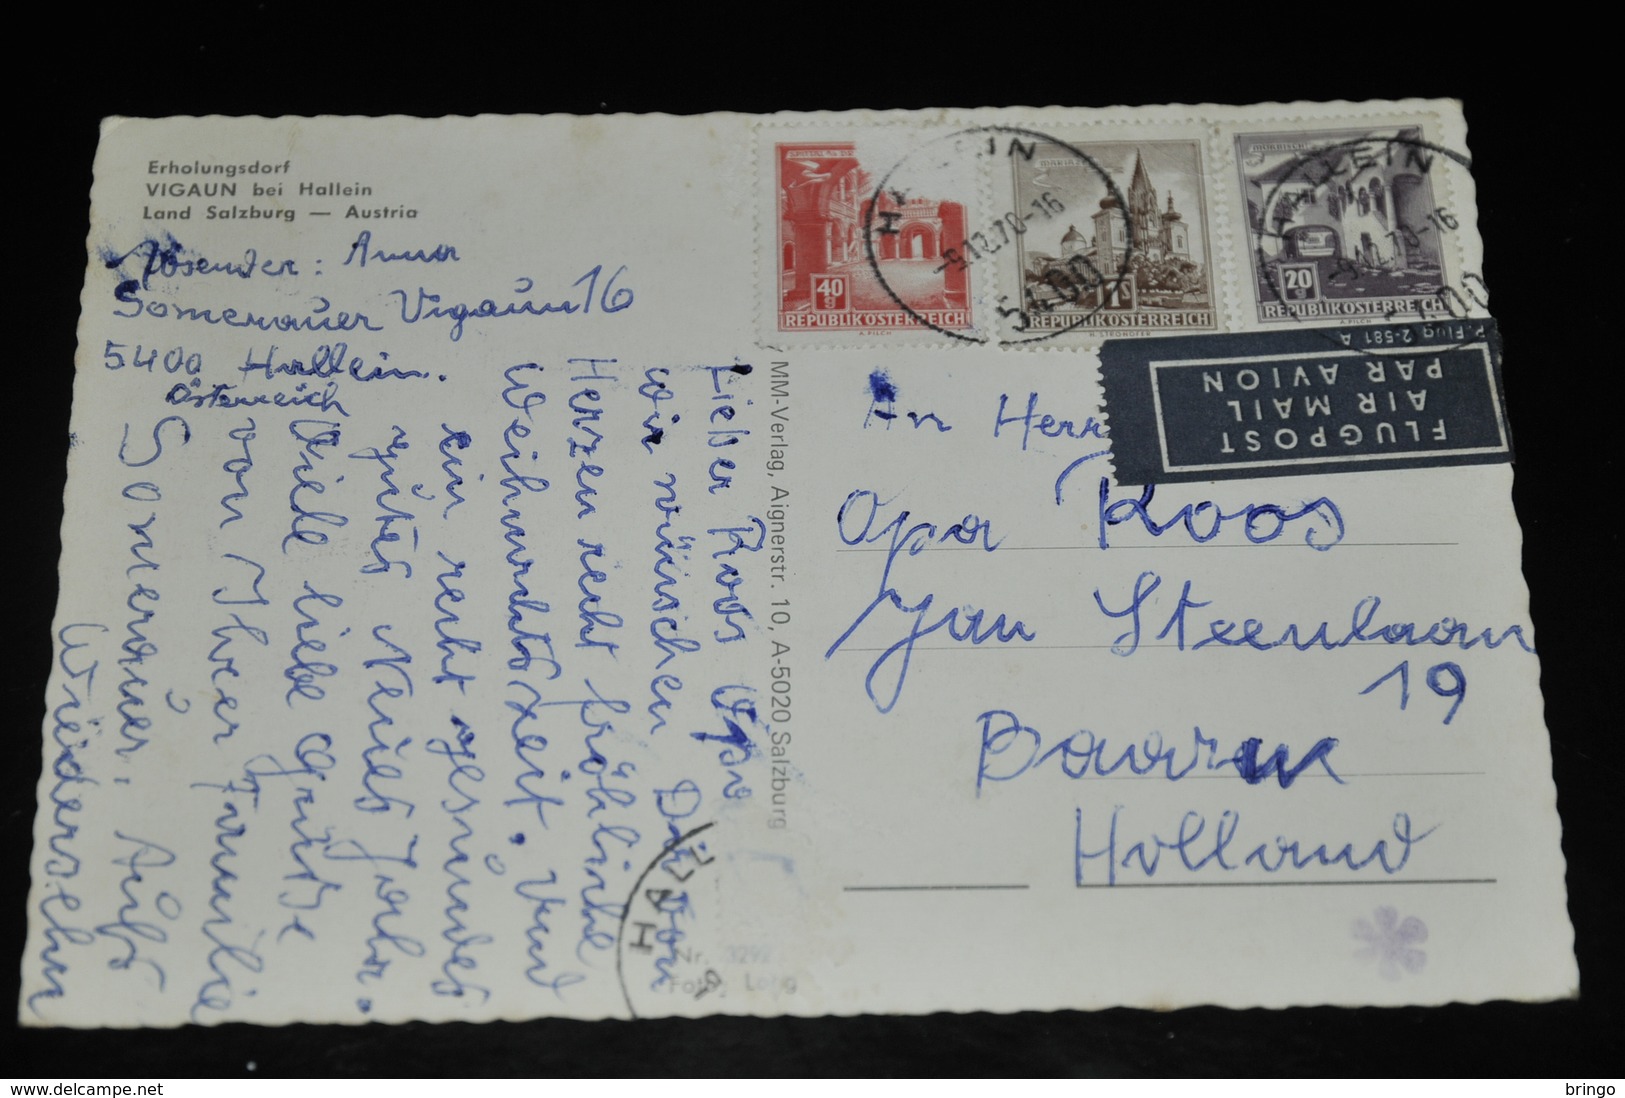 Erholungsdorf
VIGAUN bei Hallein
Land Salzburg — Austria
Absender: Anna
Somerauer Vigaun 16
5400 Hallein.
Österreich
Lieber Roos Opa
wir wünschen Dir von
Herzen recht fröhliche
Weihnachtszeit. Und
ein recht gesundes
gutes Neues Jahr.
Viele liebe Grüße
von Ihrer Familie
Somerauer. Aufs
Wiedersehen
MM-Verlag, Aignerstr. 10, A-5020 Salzburg
Nr. 3292
HALL
40 g
REPUBLIK ÖSTERREICH
A. PILCH
MARIAZELL
1 S
REPUBLIK ÖSTERREICH
H. STROHOFER
MÖRBISCH
20 g
REPUBLIK ÖSTERREICH
A. PILCH
HALLEIN
-9.12.70-16
5400
HALLEIN
-9.12.70-16
5400
P. Flug 2-581 A
FLUGPOST
AIR MAIL
PAR AVION
An Herrn
Opa Roos
Jan Steenlaan
19
Baarn
Holland
bringo
www.delcampe.net